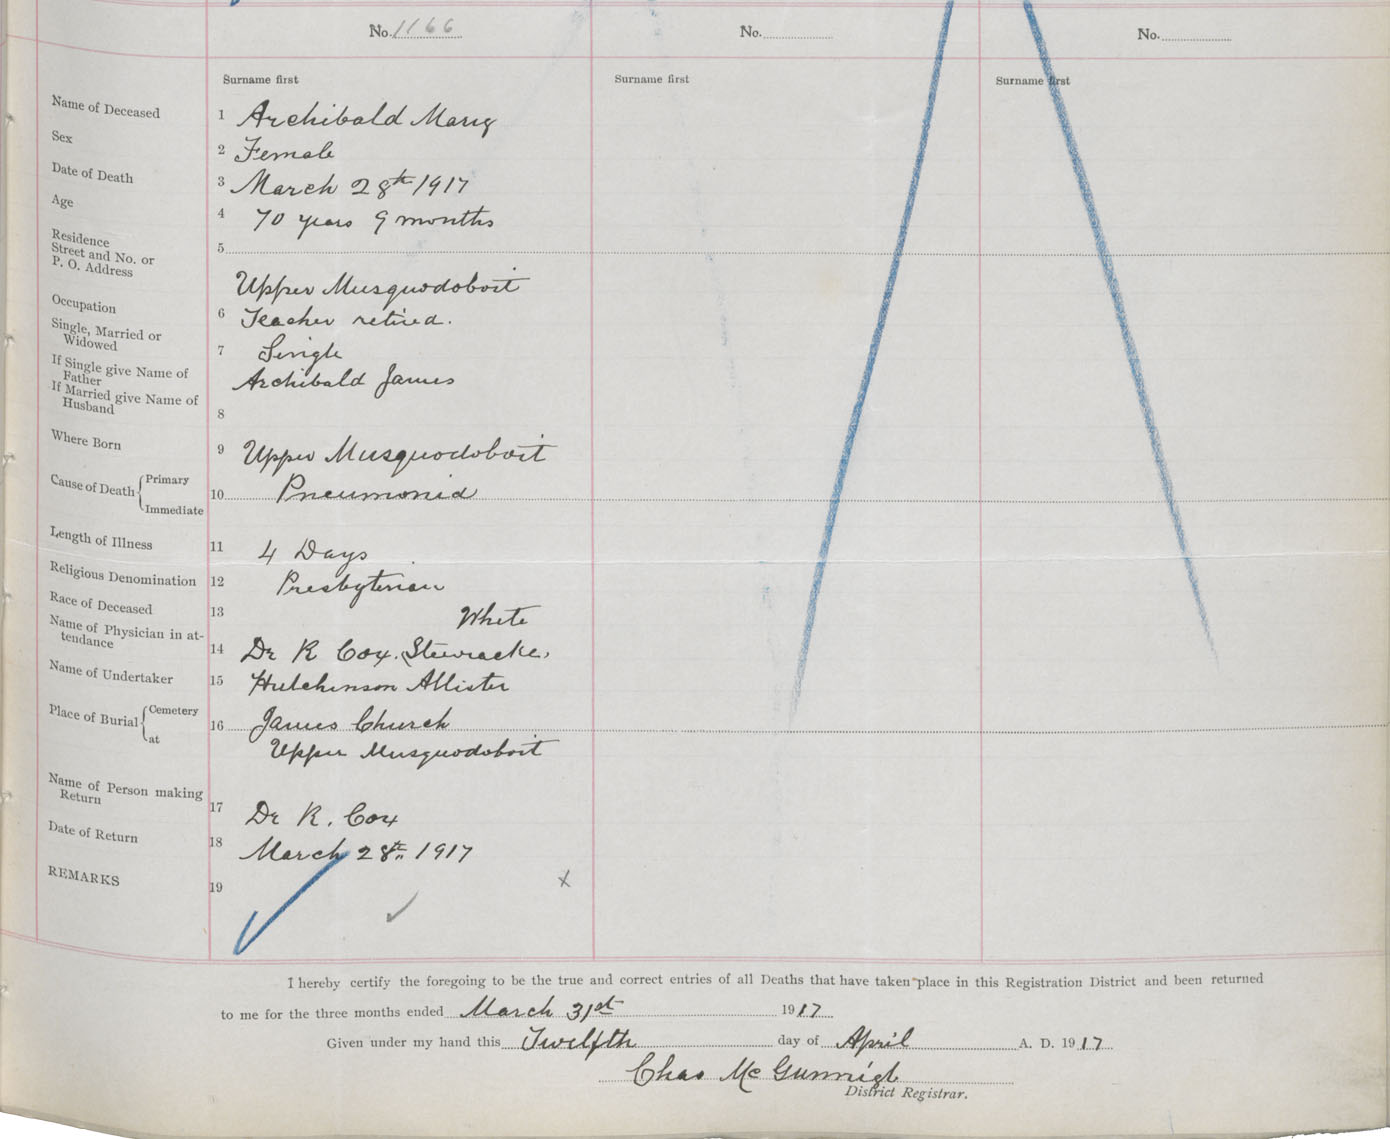 No. 1166 No. No.
Surname first Surname first Surname first
Name of Deceased 1 Archibald Mary
Sex 2 Female
Date of Death 3 March 28th 1917
Age 4 70 years 9 months
Residence
Street and No. or
P. O. Address 5
Upper Musquodoboit
Occupation 6 Teacher retired.
Single, Married or
Widowed 7 Single
If Single give Name of
Father Archibald James
If Married give Name of
Husband 8
Where Born 9 Upper Musquodoboit
Cause of Death { Primary
10 Pneumonia
Immediate
Length of Illness 11 4 Days
Religious Denomination 12 Presbyterian
Race of Deceased 13 White
Name of Physician in at-
tendance 14 Dr R Cox. Stewiacke,
Name of Undertaker 15 Hutchinson Allister
Place of Burial { Cemetery
16 James Church
at Upper Musquodoboit
Name of Person making
Return 17 Dr R. Cox
Date of Return 18 March 28th 1917
REMARKS 19 x
I hereby certify the foregoing to be the true and correct entries of all Deaths that have taken place in this Registration District and been returned
to me for the three months ended March 31st 1917
Given under my hand this Twelfth day of April A. D. 1917
Chas McGunnigl
District Registrar.